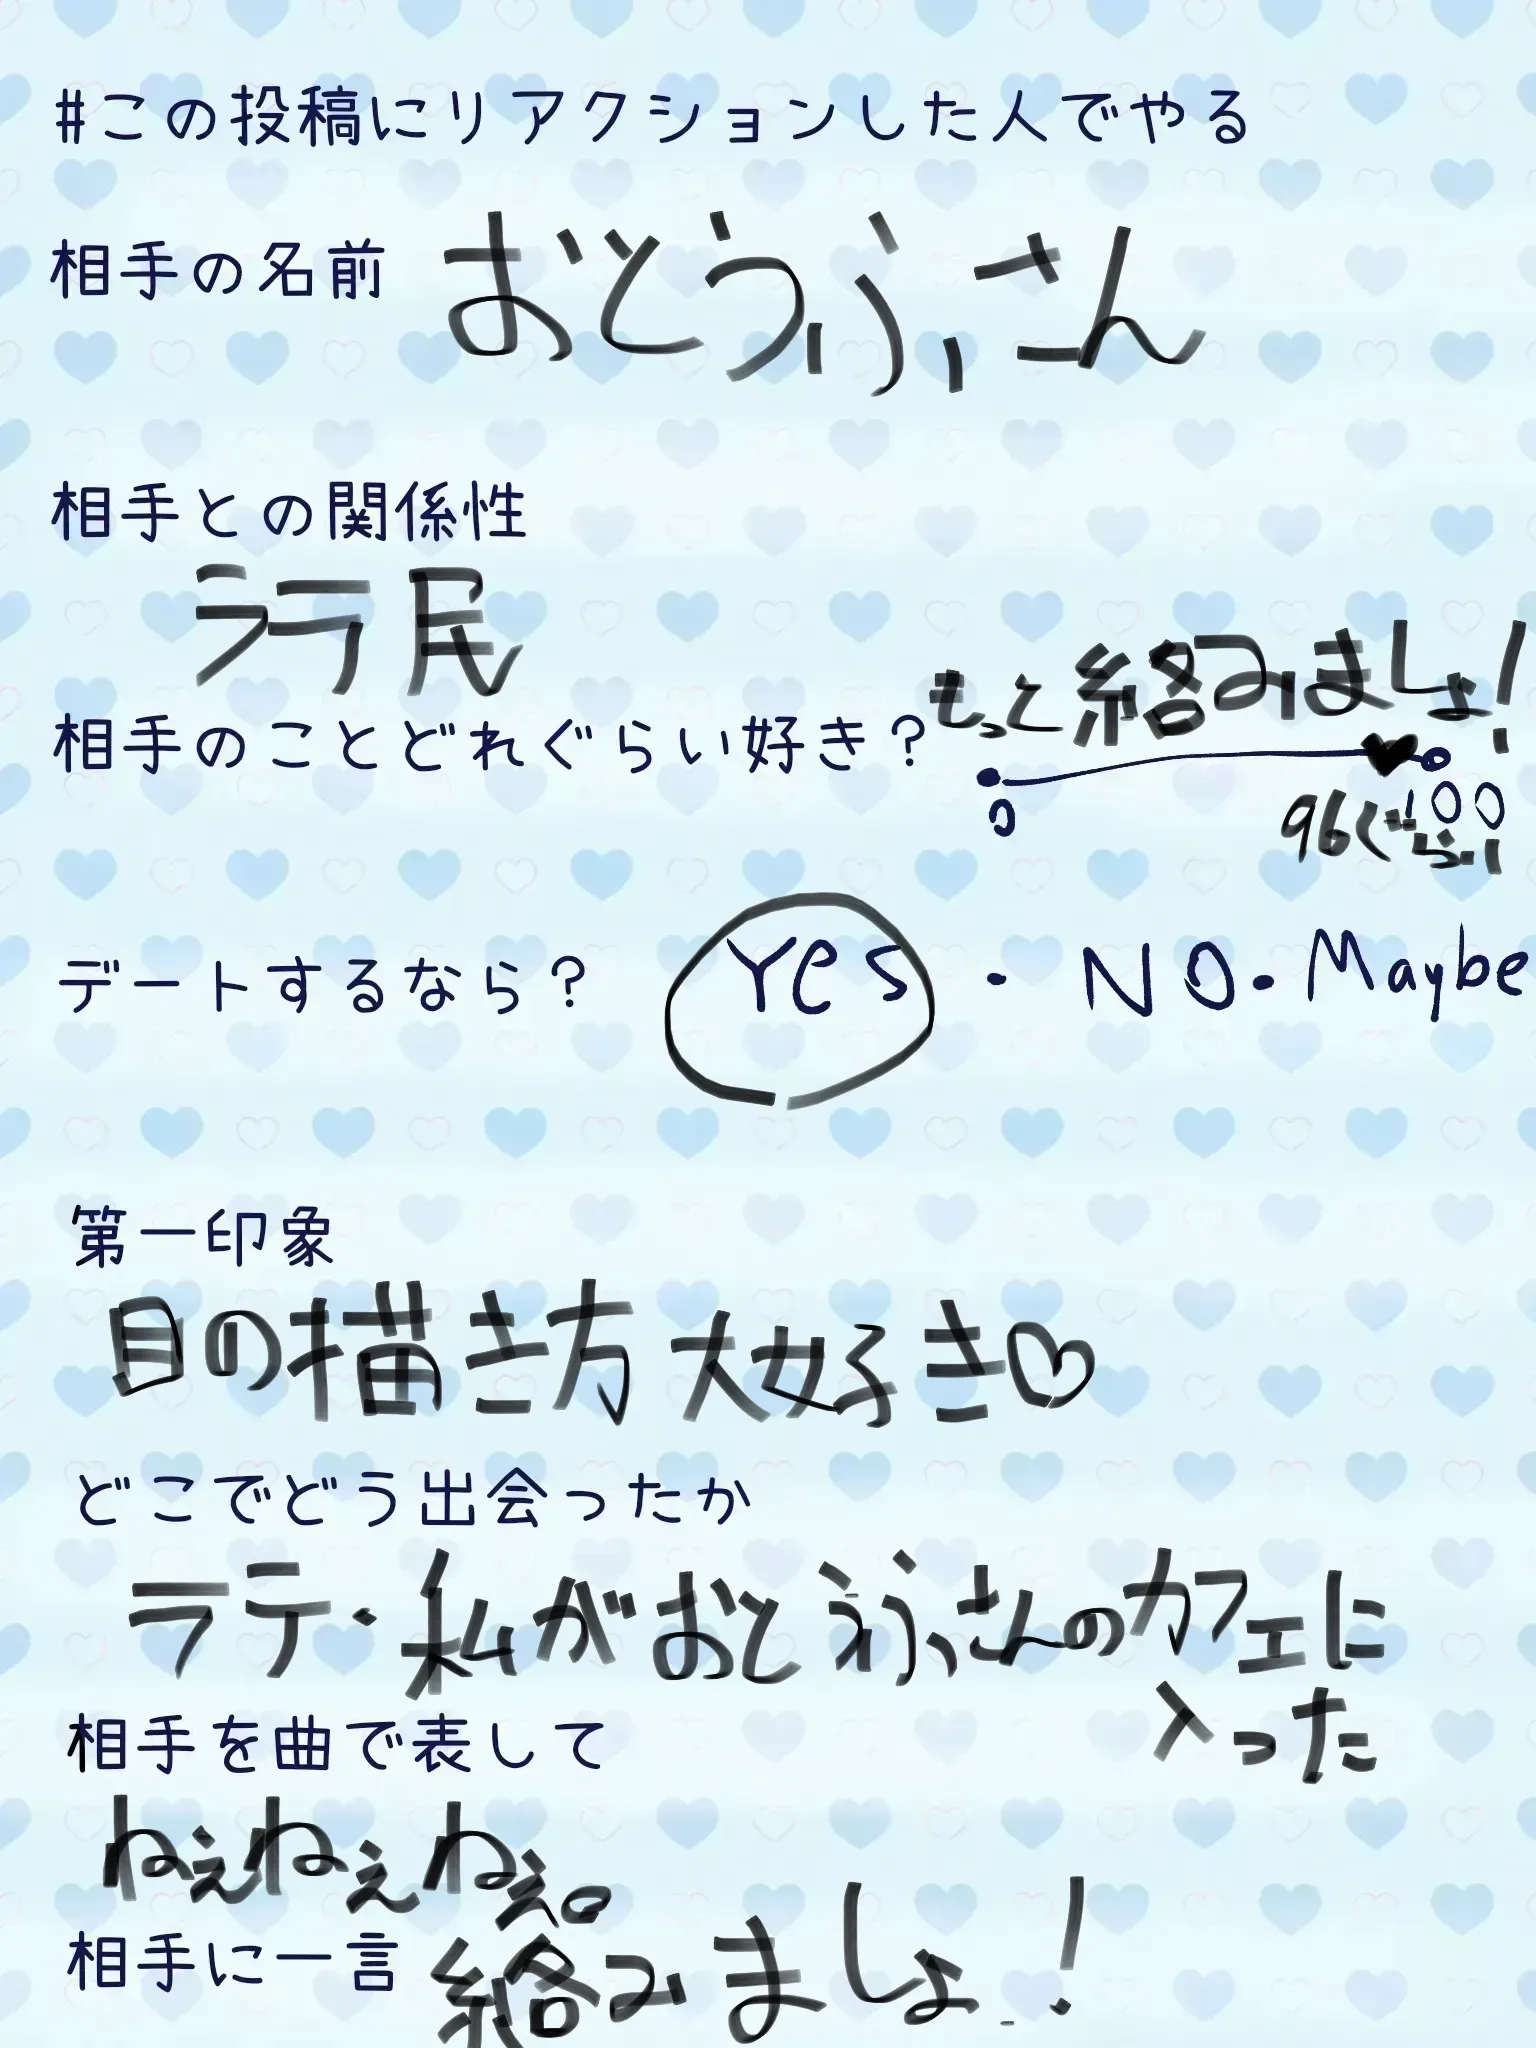 #この投稿にリアクションした人でやる
相手の名前 おとうふさん
相手との関係性
ラテ民
もっと絡みましょ!
相手のことどれぐらい好き?
0 100
96ぐらい
デートするなら? Yes・NO・Maybe
第一印象
目の描き方大好き♡
どこでどう出会ったか
ラテ・私がおとうふさんのカフェに
入った
相手を曲で表して
ねぇねぇねぇ。
相手に一言 絡みましょ!